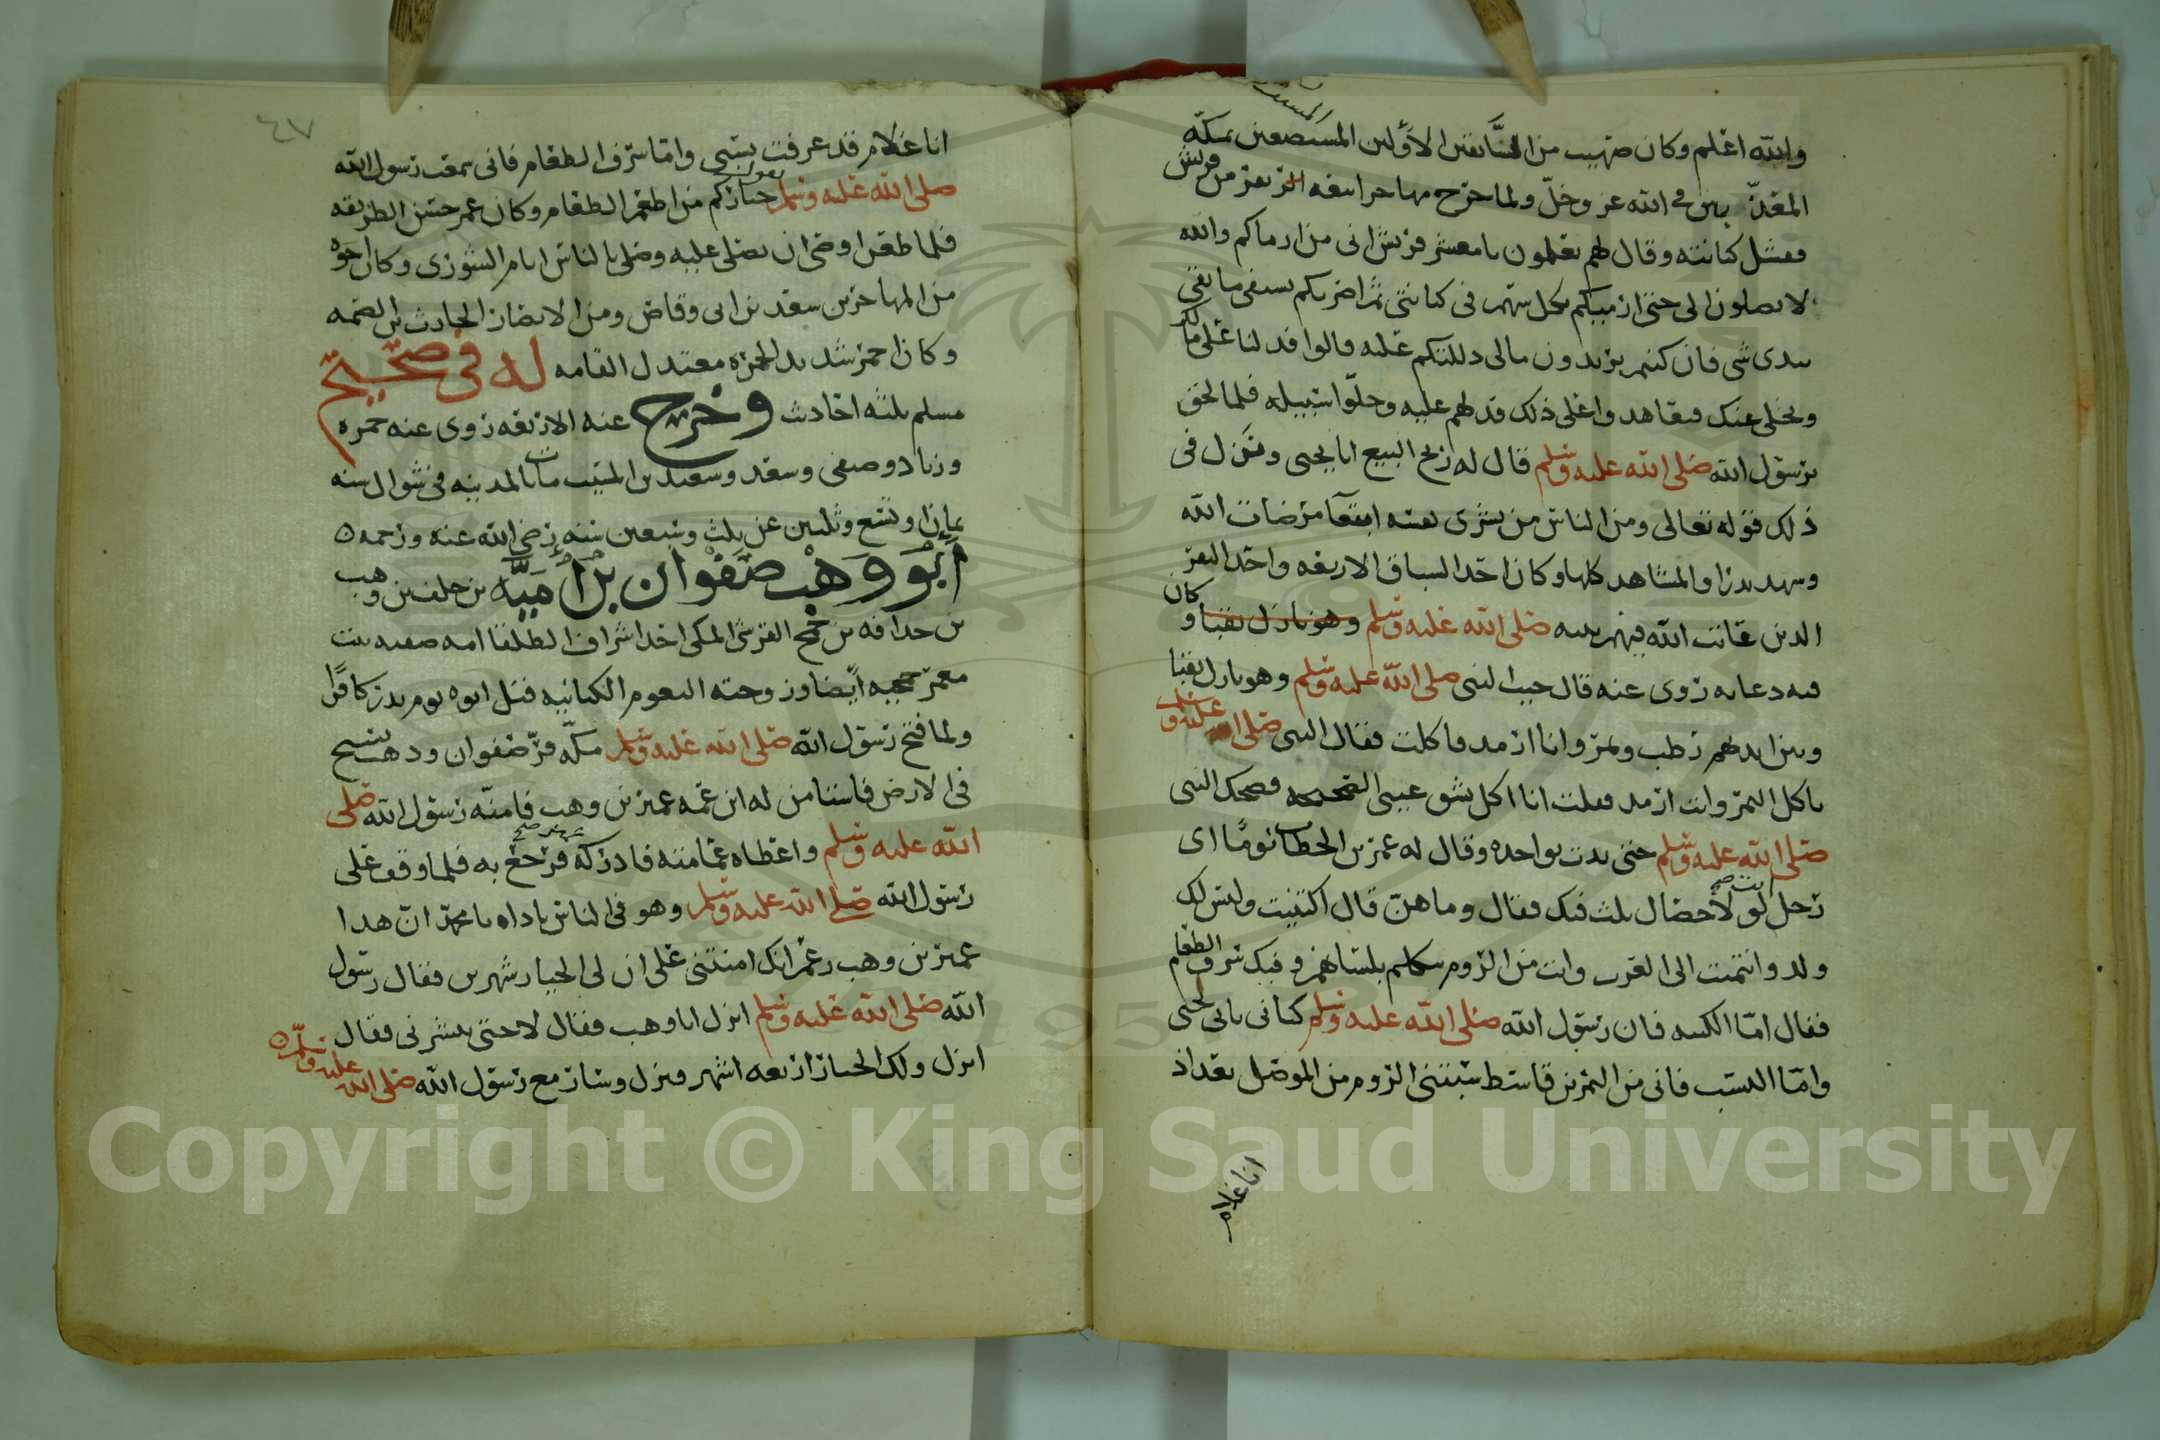 والله اعلم وكان صهيب من السابقين الاولين المستضعفين بمكة
المعذبين في الله عز وجل ولما خرج مهاجرا تبعه نفر من قريش
فنثل كنانته وقال لهم تعلمون يا معشر قريش اني من ارماكم والله
لا تصلون الي حتى ارميكم بكل سهم في كنانتي ثم اضربكم بسيفي ما بقي
بيدي شي فان كنتم تريدون مالي دللتكم عليه قالوا فدلنا على مالك
ونخلي عنك فتعاهدوا على ذلك فدلهم عليه وخلوا سبيله فلما لحق
برسول الله صلى الله عليه وسلم قال له ربح البيع ابا يحيى ونزل في
ذلك قوله تعالى ومن الناس من يشري نفسه ابتغآ مرضات الله
وشهد بدرا والمشاهد كلها وكان احد السباق الاربعة واحد النفر
الذين عاتب الله فيهم نبيه صلى الله عليه وسلم وهو نازل بقبا وكان
فيه دعابه روى عنه قال جيت النبي صلى الله عليه وسلم وهو نازل بقبا
وبين ايديهم رطب وتمر وانا ارمد فاكلت فقال النبي صلى الله عليه وسلم
تاكل التمر وانت ارمد فقلت انا اكل بشق عيني الصحيحه فضحك النبي
صلى الله عليه وسلم حتى بدت نواجده وقال له عمر بن الخطاب يوما اي
رجل انت لولا خصال ثلث فيك فقال وما هن قال اكتنيت وليس لك
ولد وانتميت الى العرب وانت من الروم تتكلم بلسانهم وفيك سرف الطعام
فقال اما الكنيه فان رسول الله صلى الله عليه وسلم كناني بابي يحيى
واما النسب فاني من النمر بن قاسط سبتني الروم من الموصل بعد اذ
انا غلام
٤٧
انا غلام قد عرفت نسبي واما سرف الطعام فاني سمعت رسول الله
صلى الله عليه وسلم يقول خياركم من اطعم الطعام وكان عمر حسن الطريقه
فلما طعن اوصى ان يصلي عليه وصلى بالناس ايام الشورى وكان اخوه
من المهاجرين سعد بن ابي وقاص ومن الانصار الحارث بن الصمه
وكان احمر شديد الحمره معتدل القامه له في صحيح
مسلم ثلثه احاديث وخرج عنه الاربعه روى عنه حمزه
وزياد وصيفي وسعد وسعيد بن المسيب مات بالمدينه في شوال سنه
ثمان او تسع وثلثين عن ثلث وسبعين سنه رضي الله عنه ورحمه
أبو وهب صفوان بن أميه بن خلف بن وهب
بن حذافه بن جمح القرشي المكي احد اشراف الطلقا امه صفيه بنت
معمر جمحيه ايضا وزوجته البغوم الكنانيه قتل ابوه يوم بدر كافرا
ولما فتح رسول الله صلى الله عليه وسلم مكه فر صفوان وذهب يسيح
في الارض فاستامن له ابن عمه عمير بن وهب فامنه رسول الله صلى
الله عليه وسلم واعطاه عمامته فادركه عمير فرجع به فلما وقف على
رسول الله صلى الله عليه وسلم وهو في الناس ناداه يا محمد ان هدا
عمير بن وهب زعم انك امنتني على ان لي الخيار شهرين فقال رسول
الله صلى الله عليه وسلم انزل ابا وهب فقال لا حتى يبين لي فقال
انزل ولك الخيار اربعه اشهر فنزل وسار مع رسول الله صلى الله عليه وسلم
Copyright © King Saud University
1957